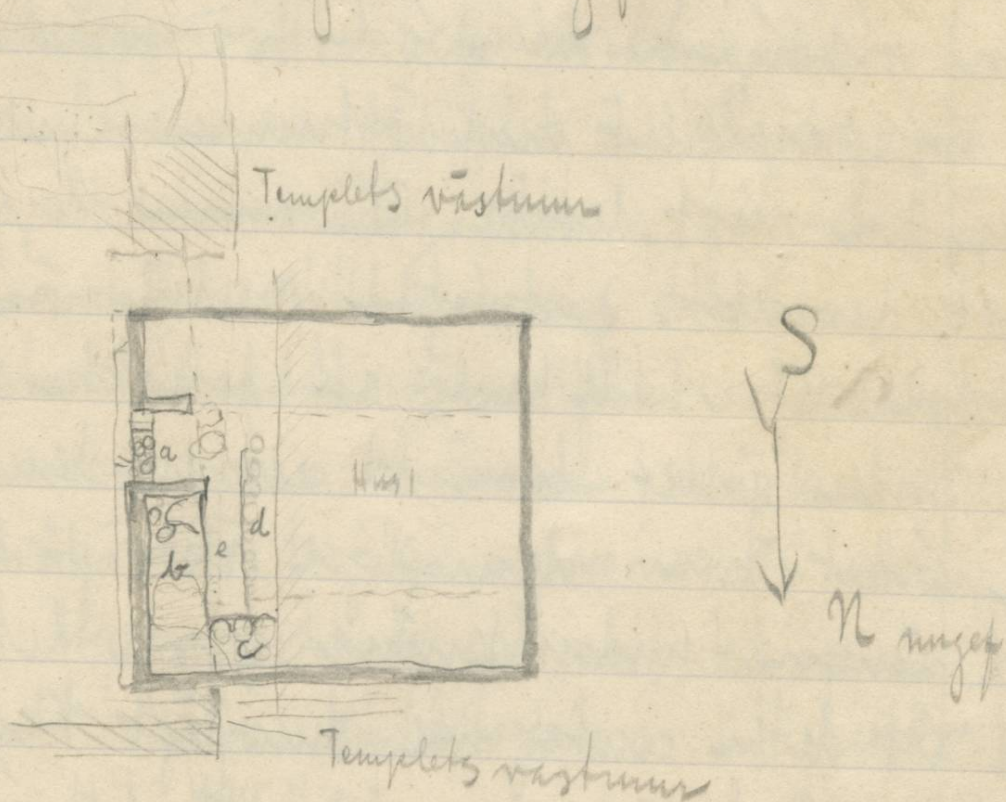 Templets västmur
S
a
Hus 1
d
b
e
c
N ungef
Templets västmur